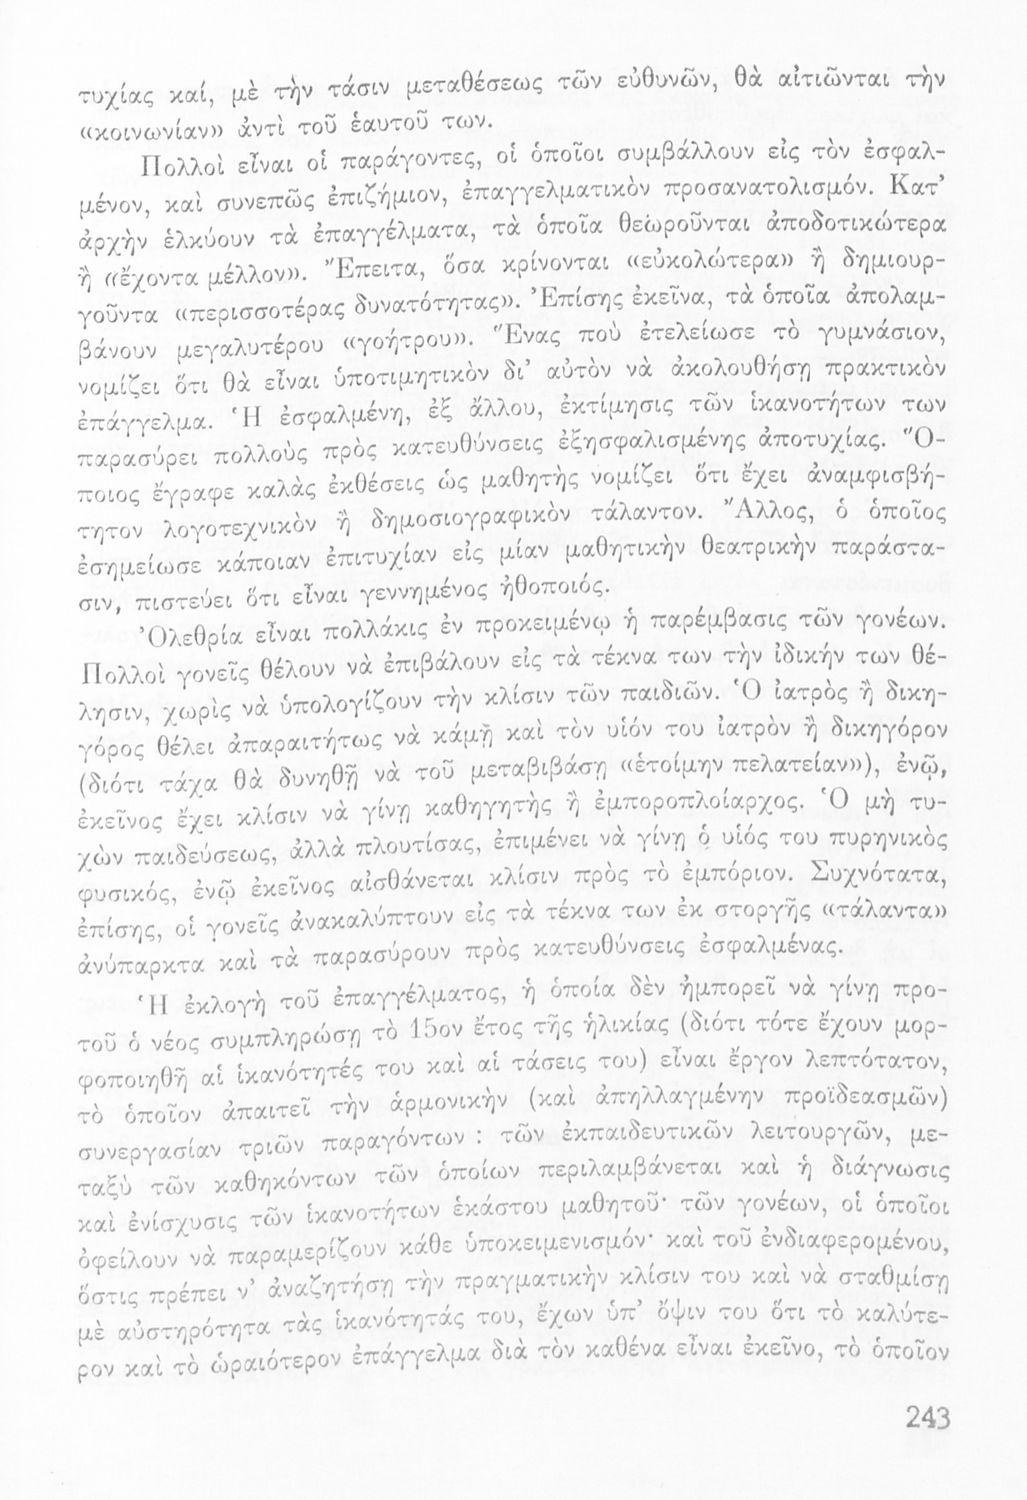 τυχίας καί, μὲ τὴν τάσιν μεταθέσεως τῶν εὐθυνῶν, θὰ αἰτιῶνται τὴν
«κοινωνίαν» ἀντὶ τοῦ ἑαυτοῦ των.
Πολλοὶ εἶναι οἱ παράγοντες, οἱ ὁποῖοι συμβάλλουν εἰς τὸν ἐσφαλ-
μένον, καὶ συνεπῶς ἐπιζήμιον, ἐπαγγελματικὸν προσανατολισμόν. Κατ’
ἀρχὴν ἑλκύουν τὰ ἐπαγγέλματα, τὰ ὁποῖα θεωροῦνται ἀποδοτικώτερα
ἢ «ἔχοντα μέλλον». Ἔπειτα, ὅσα κρίνονται «εὐκολώτερα» ἢ δημιουρ-
γοῦντα «περισσοτέρας δυνατότητας». Ἐπίσης ἐκεῖνα, τὰ ὁποῖα ἀπολαμ-
βάνουν μεγαλυτέρου «γοήτρου». Ἕνας ποὺ ἐτελείωσε τὸ γυμνάσιον,
νομίζει ὅτι θὰ εἶναι ὑποτιμητικὸν δι’ αὐτὸν νὰ ἀκολουθήσῃ πρακτικὸν
ἐπάγγελμα. Ἡ ἐσφαλμένη, ἐξ ἄλλου, ἐκτίμησις τῶν ἱκανοτήτων των
παρασύρει πολλοὺς πρὸς κατευθύνσεις ἐξησφαλισμένης ἀποτυχίας. Ὅ-
ποιος ἔγραφε καλὰς ἐκθέσεις ὡς μαθητὴς νομίζει ὅτι ἔχει ἀναμφισβή-
τητον λογοτεχνικὸν ἢ δημοσιογραφικὸν τάλαντον. Ἄλλος, ὁ ὁποῖος
ἐσημείωσε κάποιαν ἐπιτυχίαν εἰς μίαν μαθητικὴν θεατρικὴν παράστα-
σιν, πιστεύει ὅτι εἶναι γεννημένος ἠθοποιός.
Ὀλεθρία εἶναι πολλάκις ἐν προκειμένῳ ἡ παρέμβασις τῶν γονέων.
Πολλοὶ γονεῖς θέλουν νὰ ἐπιβάλουν εἰς τὰ τέκνα των τὴν ἰδικήν των θέ-
λησιν, χωρὶς νὰ ὑπολογίζουν τὴν κλίσιν τῶν παιδιῶν. Ὁ ἰατρὸς ἢ δικη-
γόρος θέλει ἀπαραιτήτως νὰ κάμῃ καὶ τὸν υἱόν του ἰατρὸν ἢ δικηγόρον
(διότι τάχα θὰ δυνηθῇ νὰ τοῦ μεταβιβάσῃ «ἑτοίμην πελατείαν»), ἐνῷ,
ἐκεῖνος ἔχει κλίσιν νὰ γίνῃ καθηγητὴς ἢ ἐμποροπλοίαρχος. Ὁ μὴ τυ-
χὼν παιδεύσεως, ἀλλὰ πλουτίσας, ἐπιμένει νὰ γίνῃ ὁ υἱός του πυρηνικὸς
φυσικός, ἐνῷ ἐκεῖνος αἰσθάνεται κλίσιν πρὸς τὸ ἐμπόριον. Συχνότατα,
ἐπίσης, οἱ γονεῖς ἀνακαλύπτουν εἰς τὰ τέκνα των ἐκ στοργῆς «τάλαντα»
ἀνύπαρκτα καὶ τὰ παρασύρουν πρὸς κατευθύνσεις ἐσφαλμένας.
Ἡ ἐκλογὴ τοῦ ἐπαγγέλματος, ἡ ὁποία δὲν ἠμπορεῖ νὰ γίνῃ προ-
τοῦ ὁ νέος συμπληρώσῃ τὸ 15ον ἔτος τῆς ἡλικίας (διότι τότε ἔχουν μορ-
φοποιηθῆ αἱ ἱκανότητές του καὶ αἱ τάσεις του) εἶναι ἔργον λεπτότατον,
τὸ ὁποῖον ἀπαιτεῖ τὴν ἁρμονικὴν (καὶ ἀπηλλαγμένην προϊδεασμῶν)
συνεργασίαν τριῶν παραγόντων : τῶν ἐκπαιδευτικῶν λειτουργῶν, με-
ταξὺ τῶν καθηκόντων τῶν ὁποίων περιλαμβάνεται καὶ ἡ διάγνωσις
καὶ ἐνίσχυσις τῶν ἱκανοτήτων ἑκάστου μαθητοῦ· τῶν γονέων, οἱ ὁποῖοι
ὀφείλουν νὰ παραμερίζουν κάθε ὑποκειμενισμόν· καὶ τοῦ ἐνδιαφερομένου,
ὅστις πρέπει ν’ ἀναζητήσῃ τὴν πραγματικὴν κλίσιν του καὶ νὰ σταθμίσῃ
μὲ αὐστηρότητα τὰς ἱκανότητάς του, ἔχων ὑπ’ ὄψιν του ὅτι τὸ καλύτε-
ρον καὶ τὸ ὡραιότερον ἐπάγγελμα διὰ τὸν καθένα εἶναι ἐκεῖνο, τὸ ὁποῖον
243